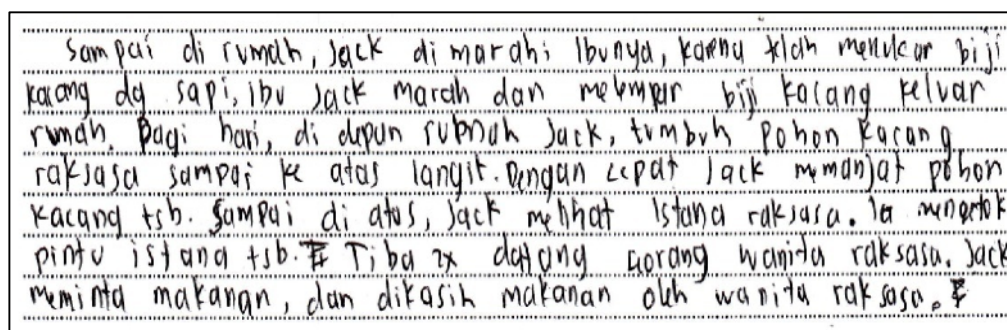 Sampai di rumah, Jack di marahi Ibunya, karna tlah menukar biji
kacang dg sapi, ibu Jack marah dan melempar biji kacang keluar
rumah. Pagi hari, di depan rumah Jack, tumbuh Pohon kacang
raksasa sampai ke atas langit. Dengan cepat Jack memanjat pohon
kacang tsb. Sampai di atas, Jack melihat Istana raksasa. Ia mengetok
pintu istana tsb. Tiba 2x datang seorang wanita raksasa. Jack
meminta makanan, dan dikasih makanan oleh wanita raksasa.